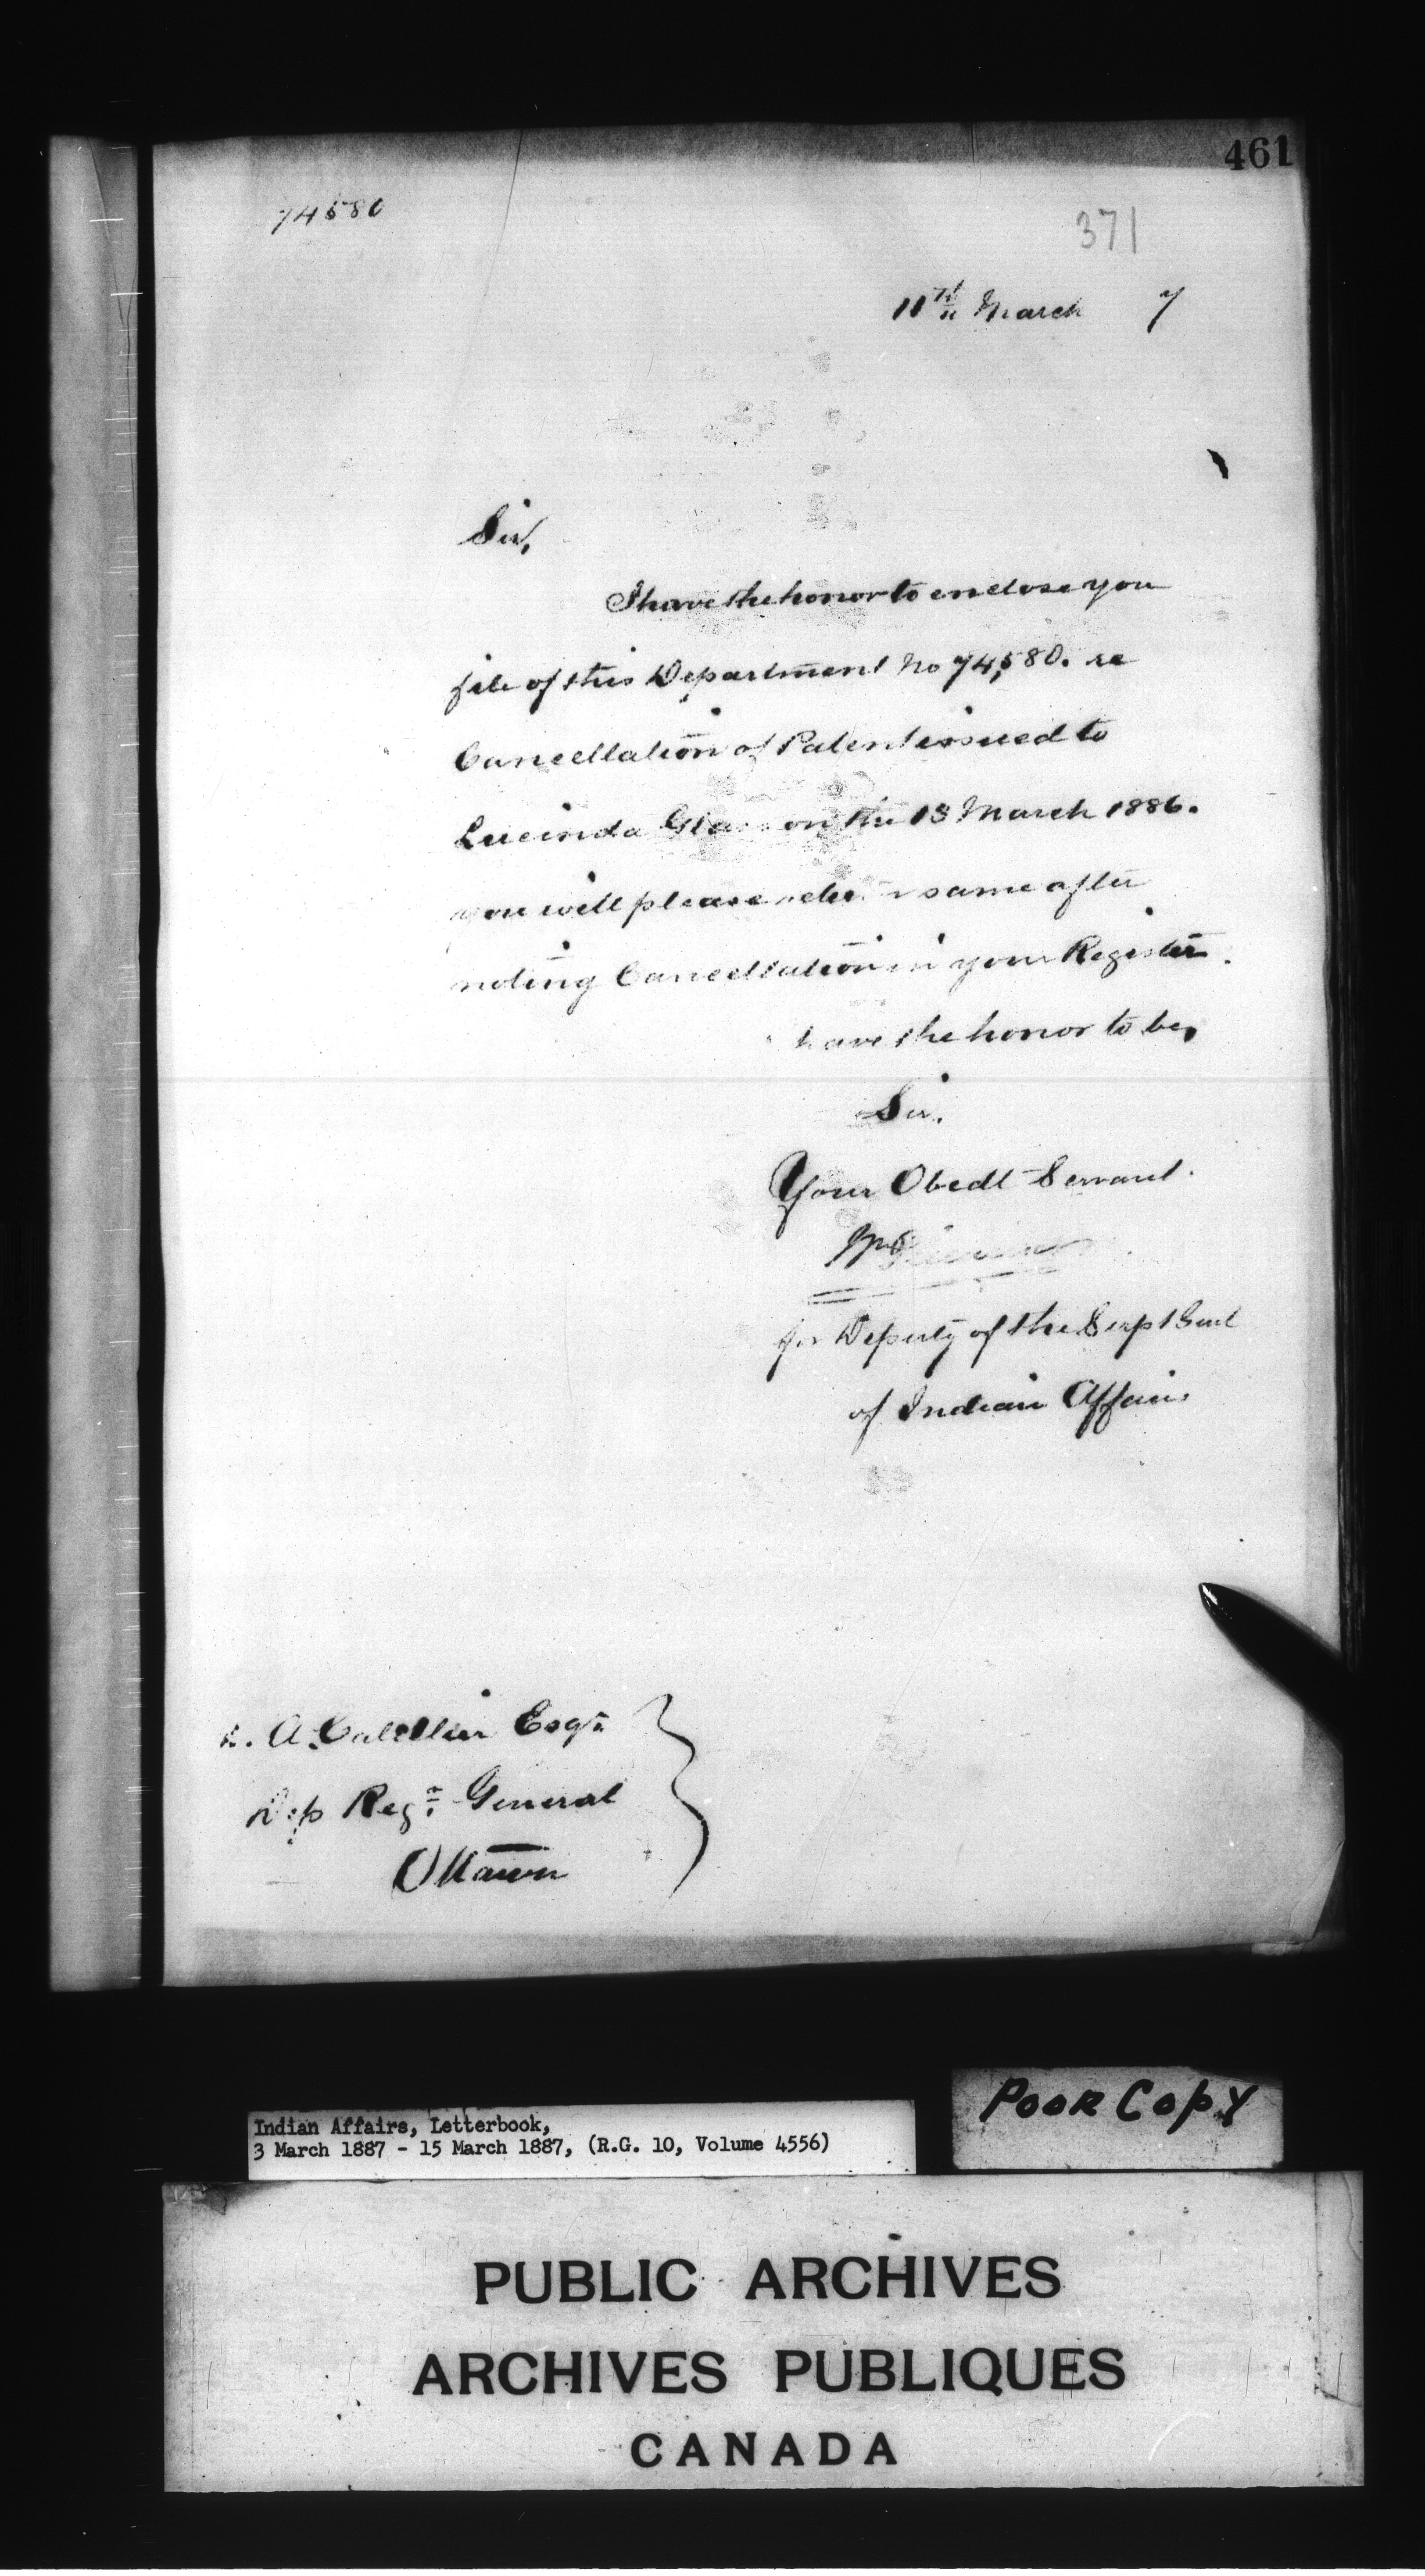 461
74580
371
11th March 7
Sir,
I have the honor to enclose you
file of this Department No 74,580. re
Cancellation of Patent issued to
Lucinda on the 13 March 1886.
you will please same after
noting Cancellation in your Register.
have the honor to be,
Sir.
Your Obedt Servant.
for Deputy of the Supt Genl
of Indian Affairs
L. A. Catellier Esqr
Dep Regr General
Ottawa
Indian Affairs, Letterbook,
3 March 1887 - 15 March 1887, (R.G. 10, Volume 4556)
POOR COPY
PUBLIC ARCHIVES
ARCHIVES PUBLIQUES
CANADA